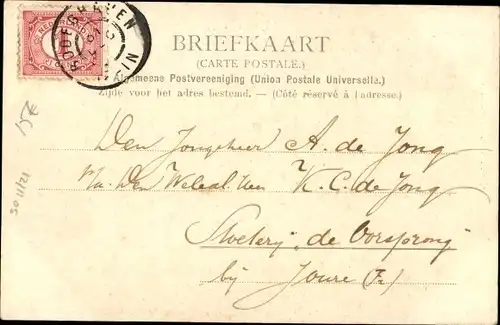 BRIEFKAART
(CARTE POSTALE.)
Algemeene Postvereeniging (Union Postale Universelle.)
Zijde voor het adres bestemd. — (Côté réservé à l'adresse.)
Den Jongeheer A. de Jong
p/a. Den Weledel. Heer K. C. de Jong
"de Oorsprong"
bij Joure (Fr)
15€